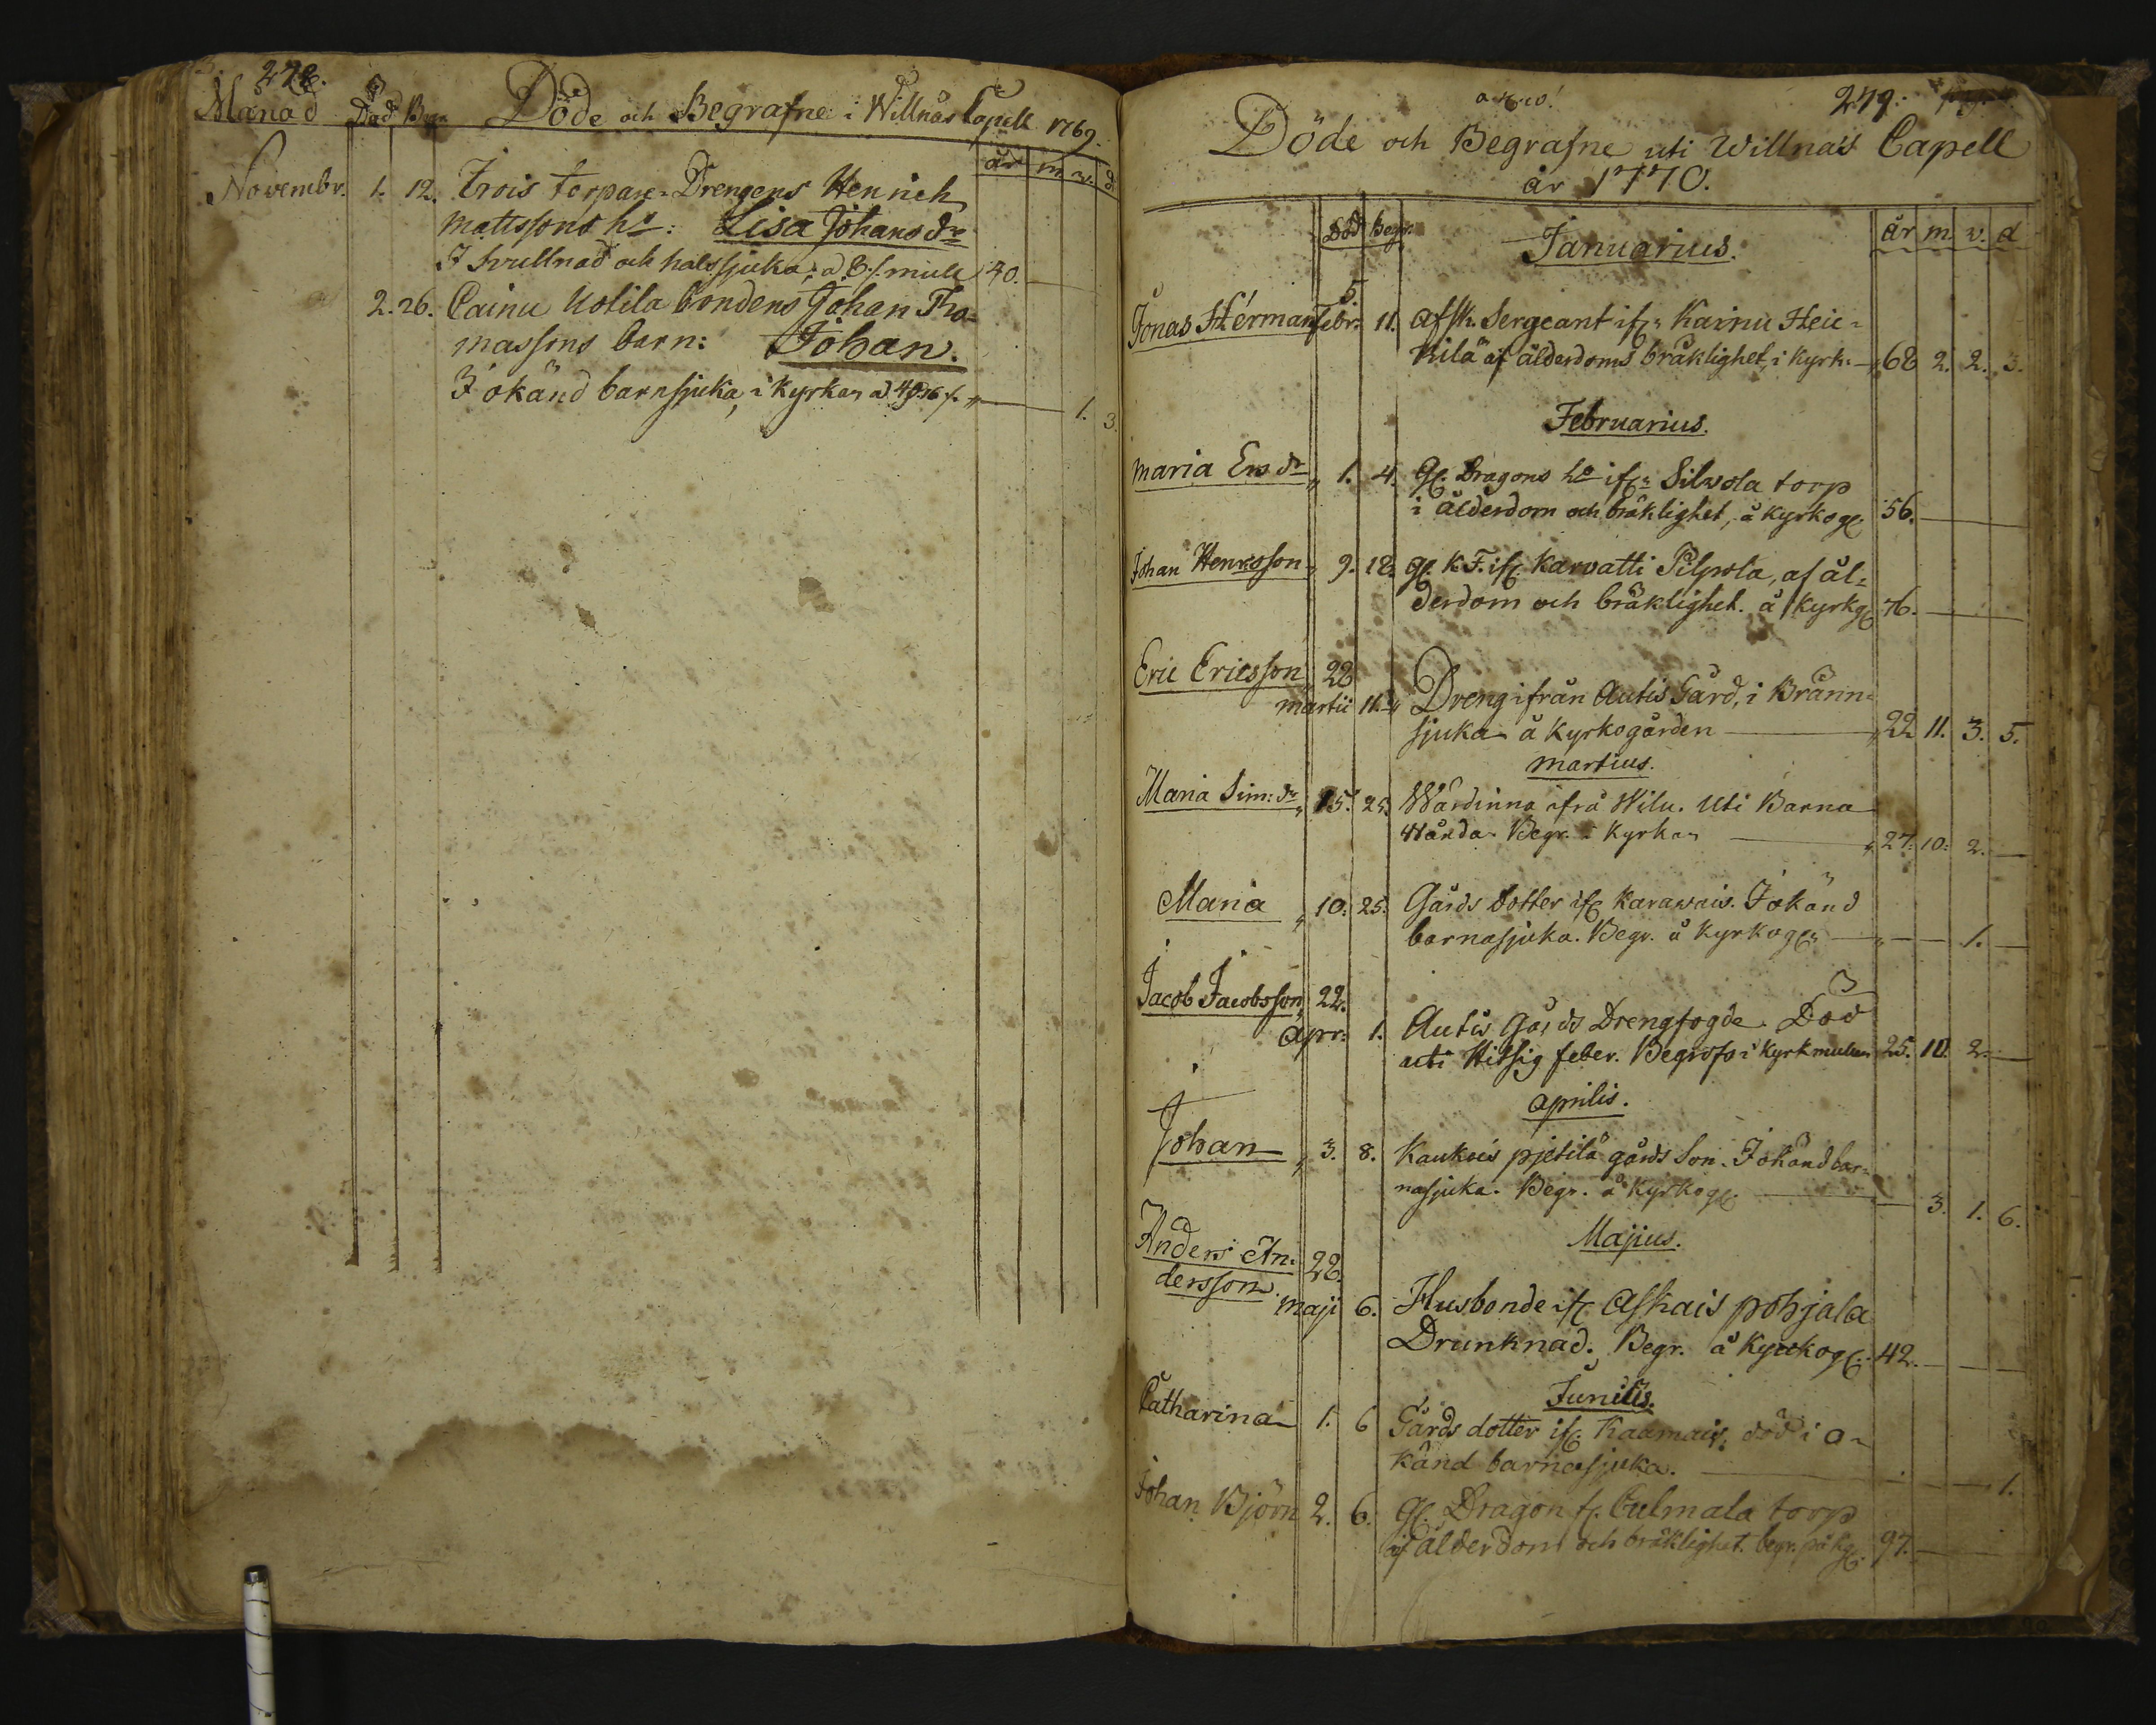 278.
Månad Död Begr. Döde och Begrafne i Willnäs Capell 1769.
år m. v. d
Novembr. 1. 12. Trois torpare-Drengens Henrich
mattssons ho: Lisa Johansdr
I svullnad och halssjuka, a 3 f. mull 40.
2. 26. Cainu Uotila bondens Johan Tho-
massons barn: Johan.
I okänd barnsjuka, i kyrkan 1. 3.
279.
Döde och Begrafne uti Willnäs Capell
år 1770.
Död Begr. Januarius. år m. v. d
5.
Jonas Herman febr. 11. afsk. Sergeant ifr. Kainu Heic-
kilä af ålderdoms bräklighet, i kyrk. 68 2. 2. 3.
Februarius.
Maria Ersdr 1. 4. Gl. Dragons ho ifr. Silvola torp
i ålderdom och bräklighet, å kyrkog. 56.
Johan Henrsson 9. 18. gl. K. F. ifr. Karvatti Pilpola, af ål-
derdom och bräklighet. å kyrkog. 76.
Eric Ericsson 22
martii 11. Dreng ifrån Autis Gård, i Bränn-
sjuka å kyrkogården 22 11. 3. 5.
Martius.
Maria Sim:dr 15. 25. Wärdinna ifrå Wilu. Uti Barna
Nånda. Begr. i Kyrkan 27. 10. 2.
Maria 10. 25. Gårds dotter ifr. Karawais. I okänd
barnasjuka. Begr. å kyrkog. 1.
Jacob Jacobsson 22.
Apr. 1. Autis Gårds Drengfogde. Död
uti Hitsig feber. Begrofs i Kyrkmullen 25. 10. 2.
Aprilis.
Johan 3. 8. Kaukois pjetilä gårds Son. I okänd bar-
nasjuka. Begr. å kyrkog. 3. 1. 6.
Majus.
Anders An- 28.
dersson.
Maji 6. Husbonde ifr. Askais pohjala
Drunknad. Begr. å Kyrkog. 42.
Junius.
Catharina 1. 6 Gårds dotter ifr. Kaamais, död i o-
känd barnasjuka. 1.
Johan Björn 2. 6. Gl. Dragon f. Culmala torp
af ålderdom och bräklighet. begr. på kg. 97.